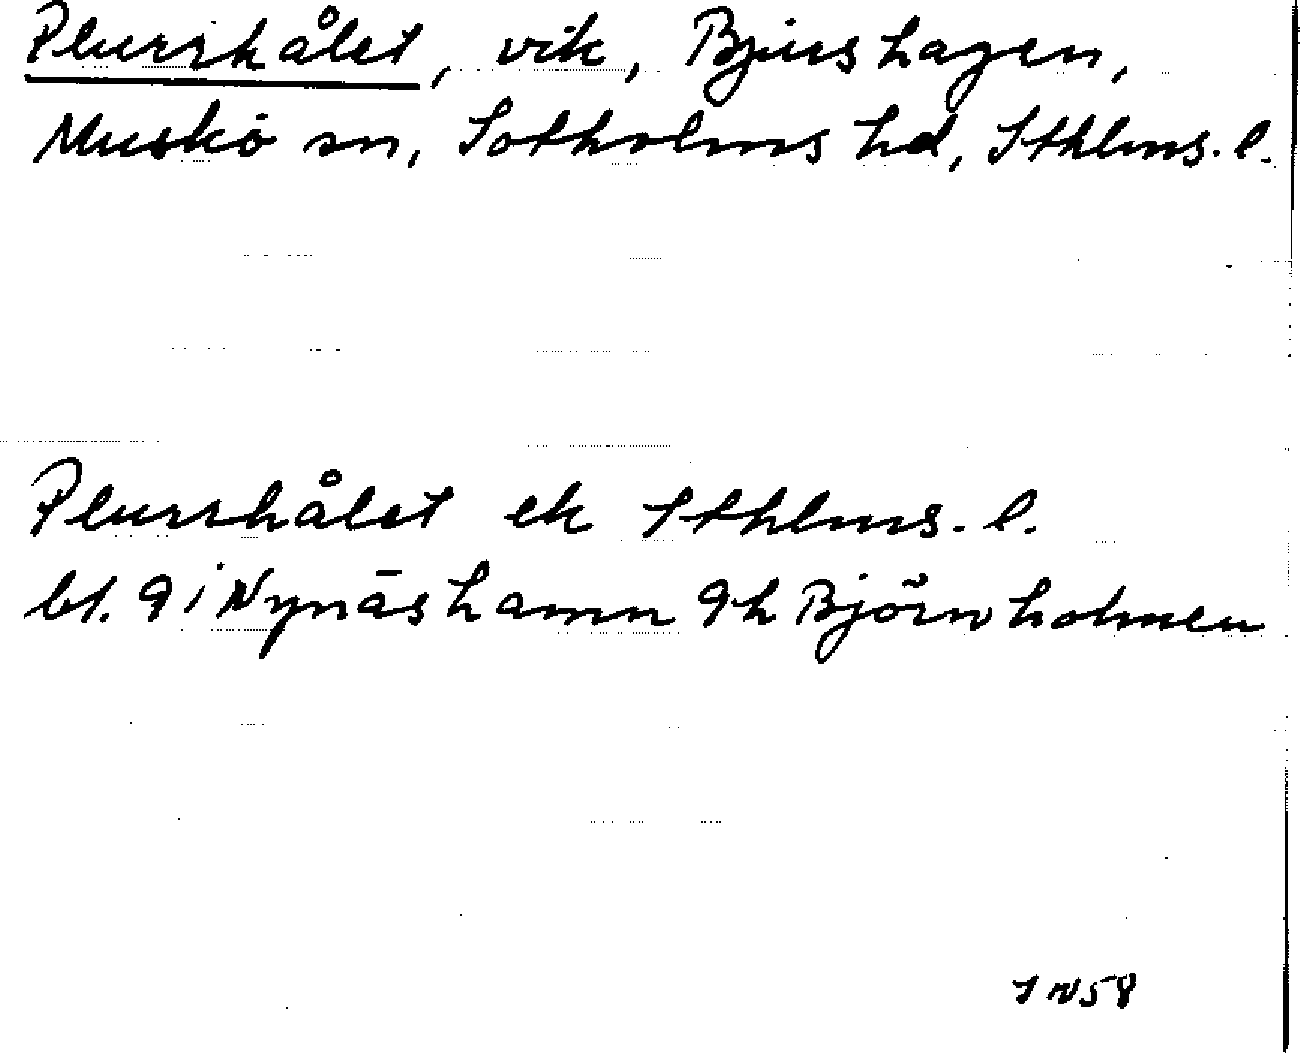 Plurrhålet, vik, Bjurshagen,
Muskö sn, Sotholms hd, Sthlms. l.
Plurrhålet ek Sthlms. l.
bl. 9 i Nynäshamn 9h Björnholmen
N58